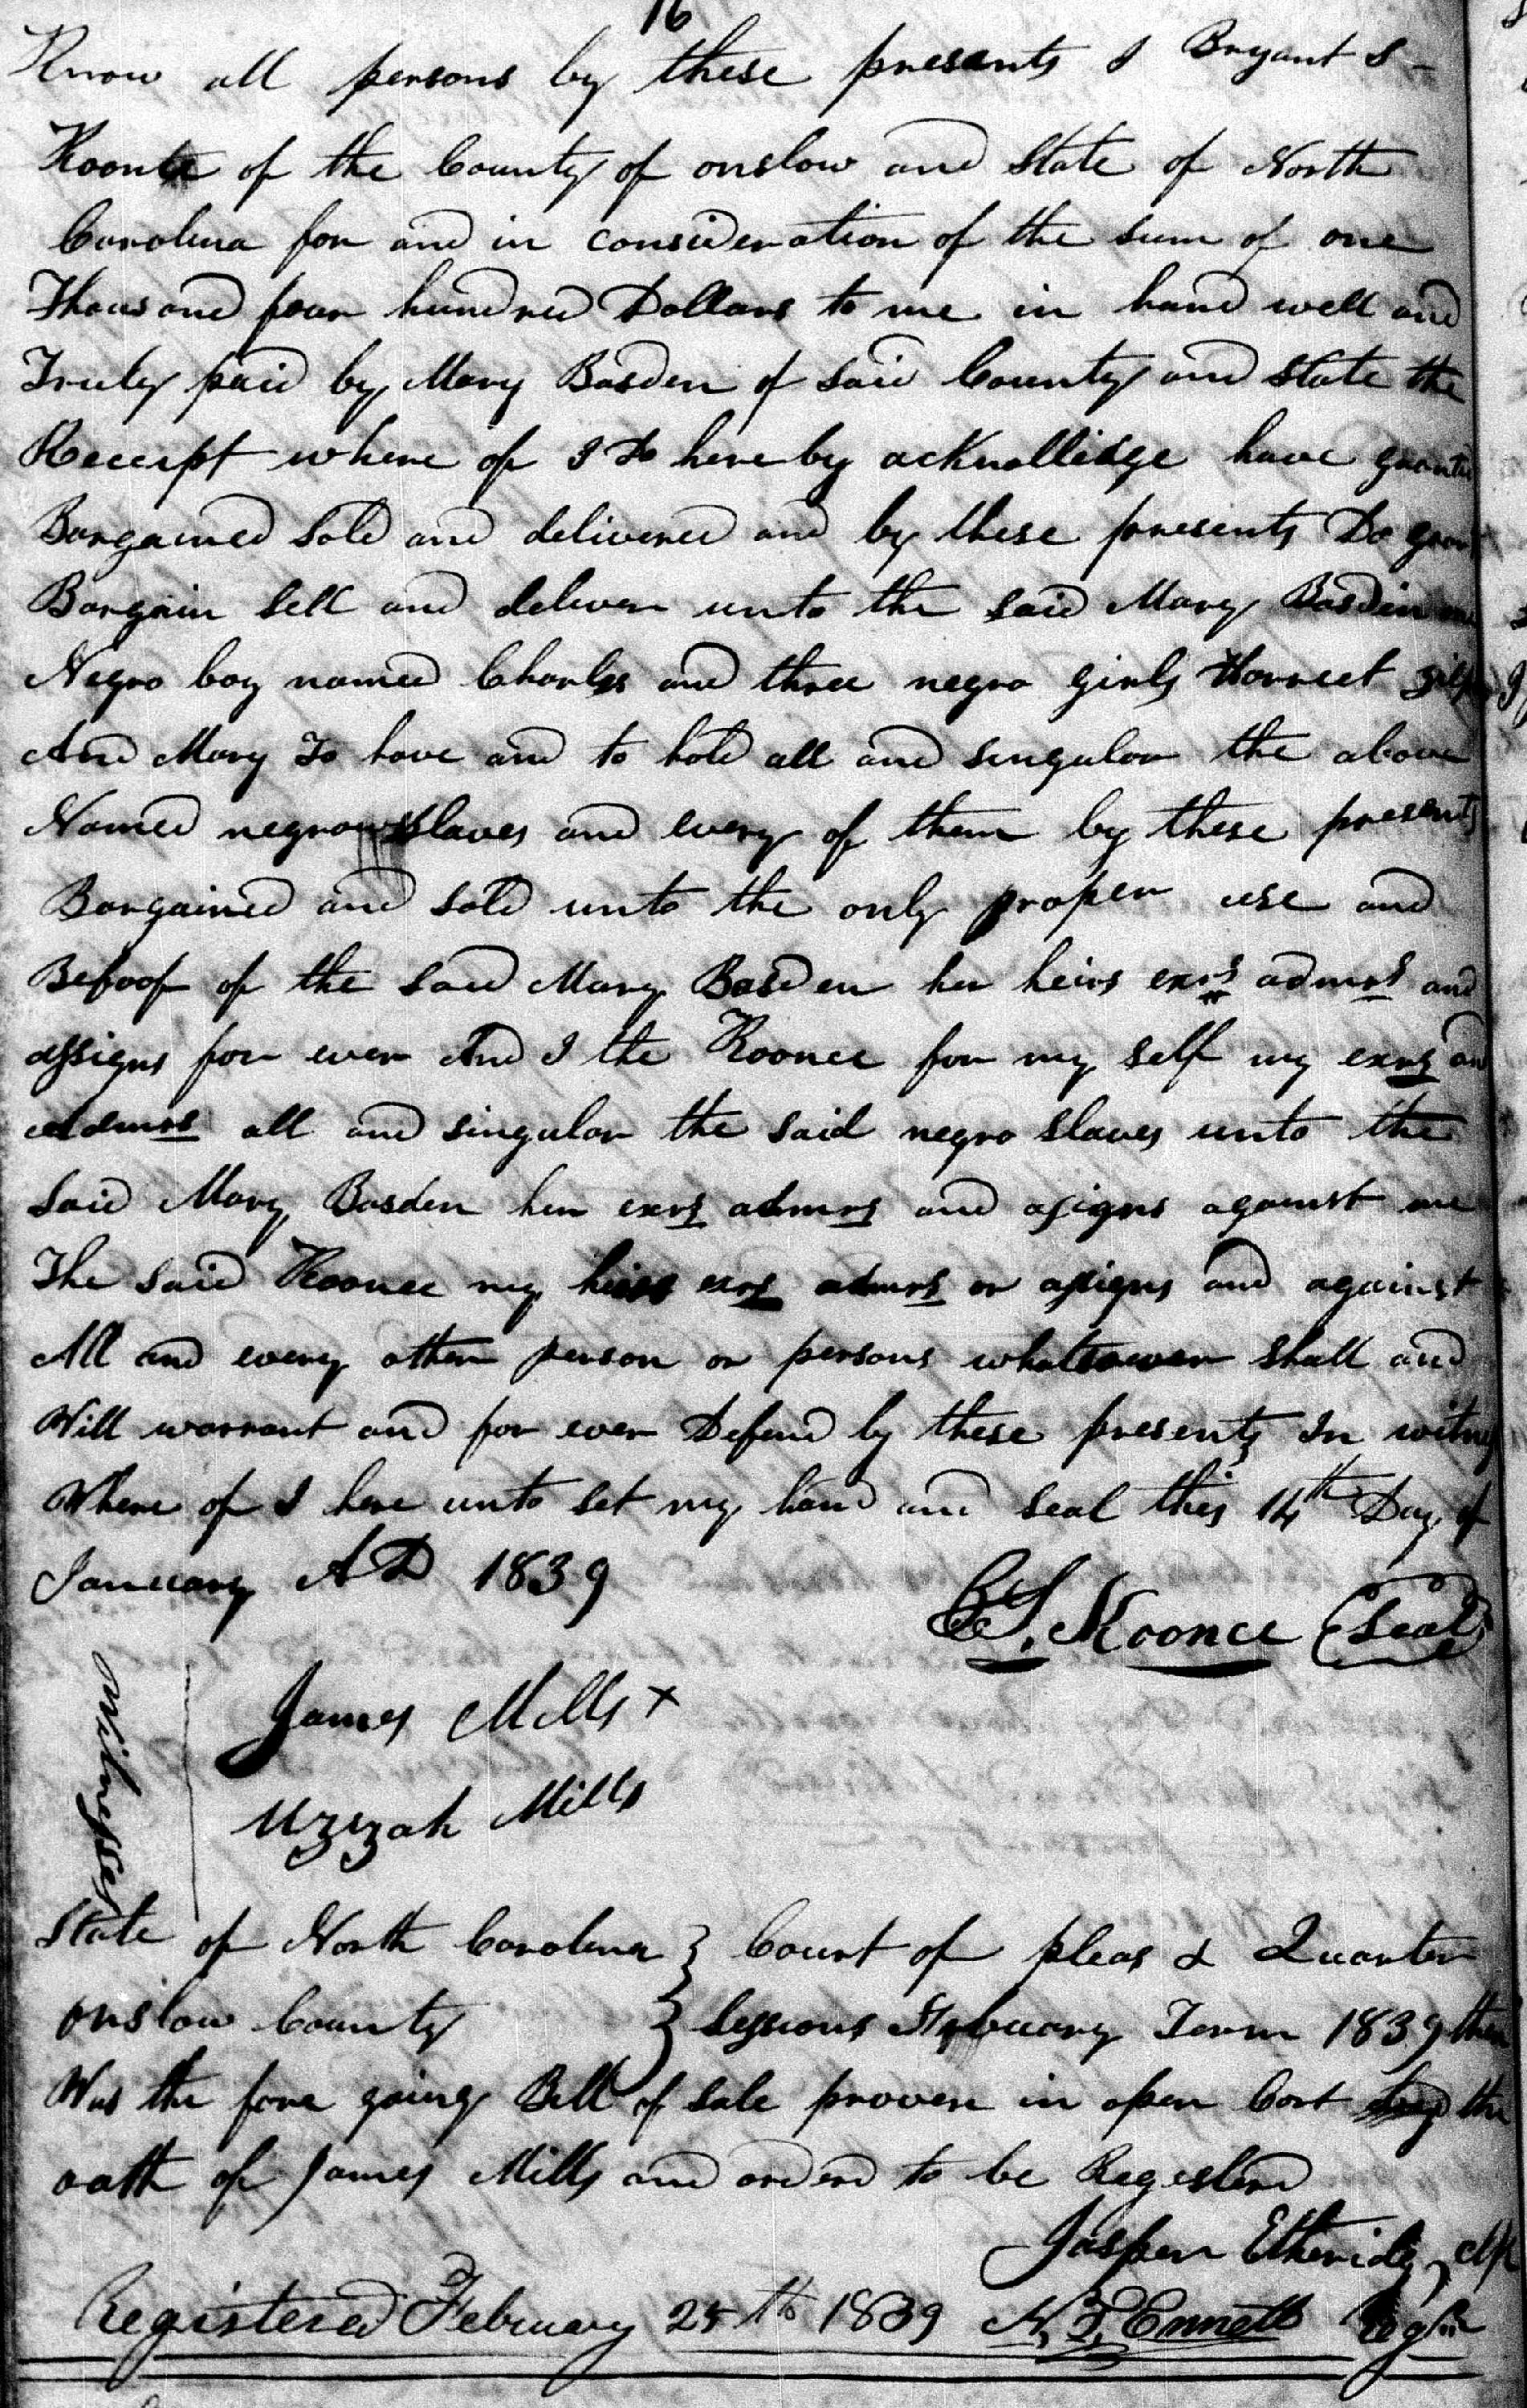 16
Know all persons by these presents I Bryant S
Koonce of the County of onslow and State of North
Carolina for and in consideration of the sum of one
Thousand four hundred Dollars to me in hand well and
Truly paid by Mary Basden of Said County and State the
Receipt where of I Do here by acknollidge have
Bargained Sold and delivered and by these presents Do
Bargain Sell and deliver unto the said Mary Basden
Negro boy named Charles and three negro girls Harreet
And Mary To have and to hold all and singular the above
Named negro slaves and every of them by these presents
Bargained and Sold unto the only proper use and
Behoof of the Said Mary Basden her heirs exrs admrs and
assigns for ever And I the Koonce for my self my exrs and
admrs all and singular the said negro slaves unto the
Said Mary Basden her exrs admrs and asigns against me
The Said Koonce my heirs exrs admrs or assigns and against
All and every other person or persons whatsoever shall and
Will warrant and for ever Defend by these presents In witness
Where of I here unto set my hand and seal this 14th Day of
January AD 1839
B. S. Koonce (Seal)
Witnesses
James Mills X
Uzzah Mills
State of North Carolina } Court of pleas & Quarter
onslow County } Sessions February Term 1839 then
Was the fore going Bill of Sale proven in open Cort the
oath of James Mills and orderd to be Registerd
Jasper Etheridge, Clk
Registered February 25th 1839 N. T. Ennett Regster